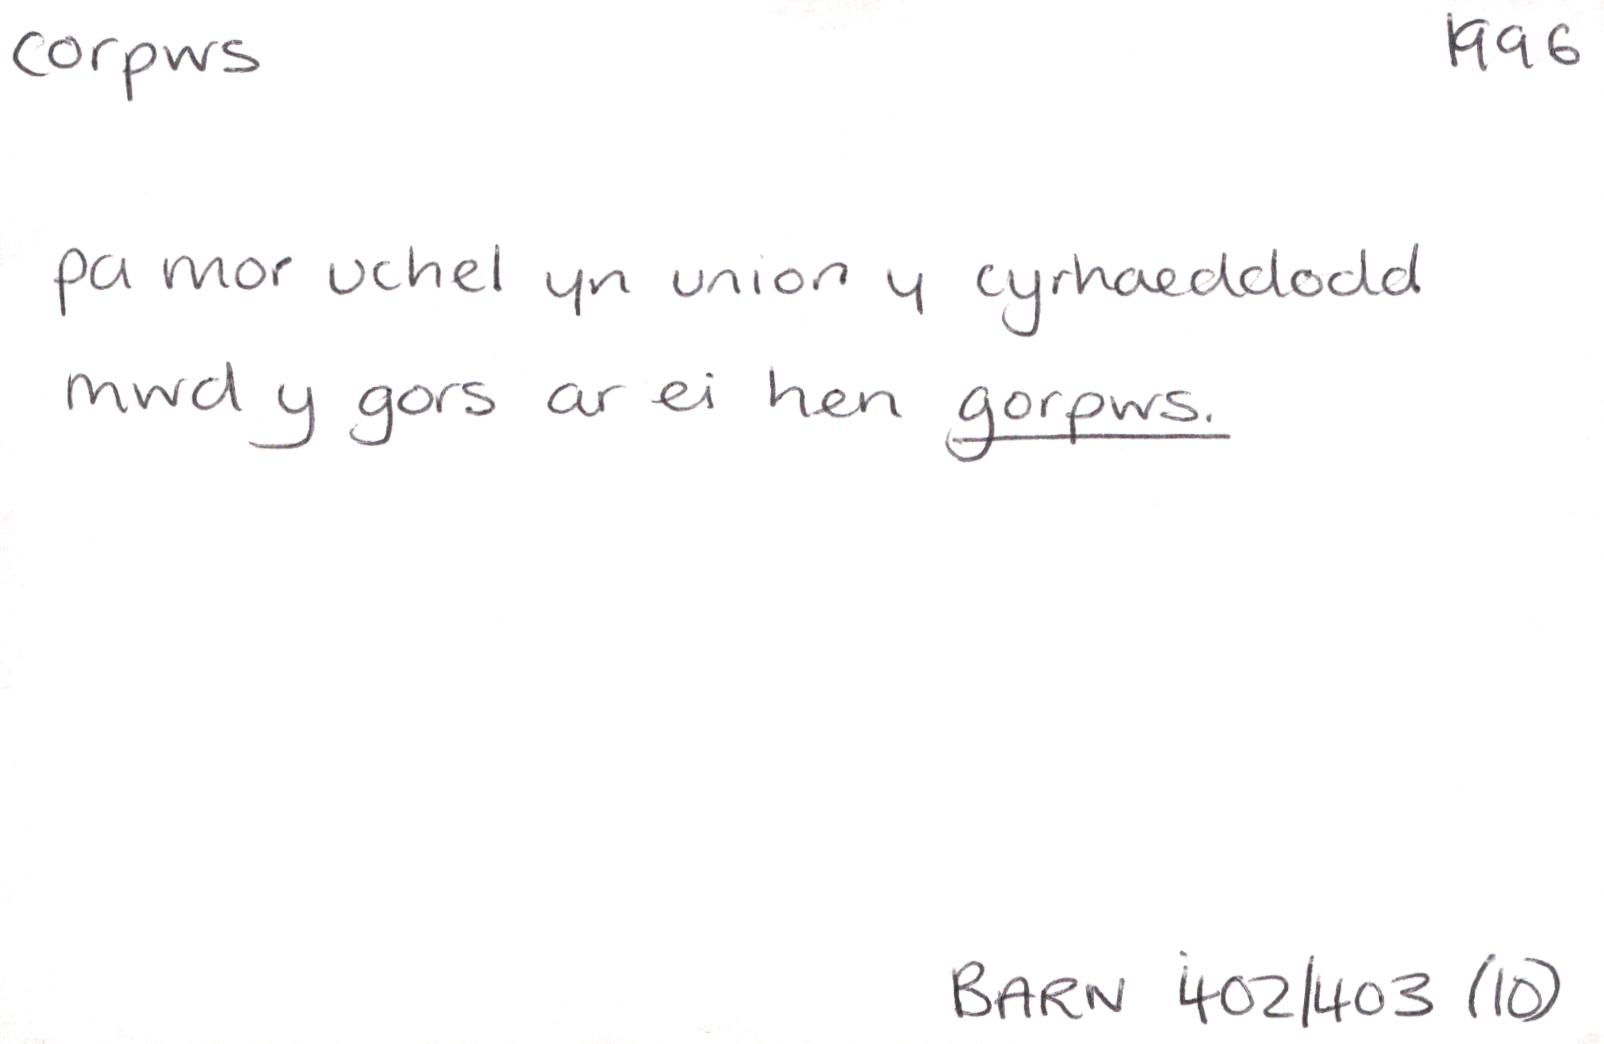 corpws 1996
pa mor uchel yn union y cyrhaeddodd
mwd y gors ar ei hen gorpws.
BARN 402/403 (10)